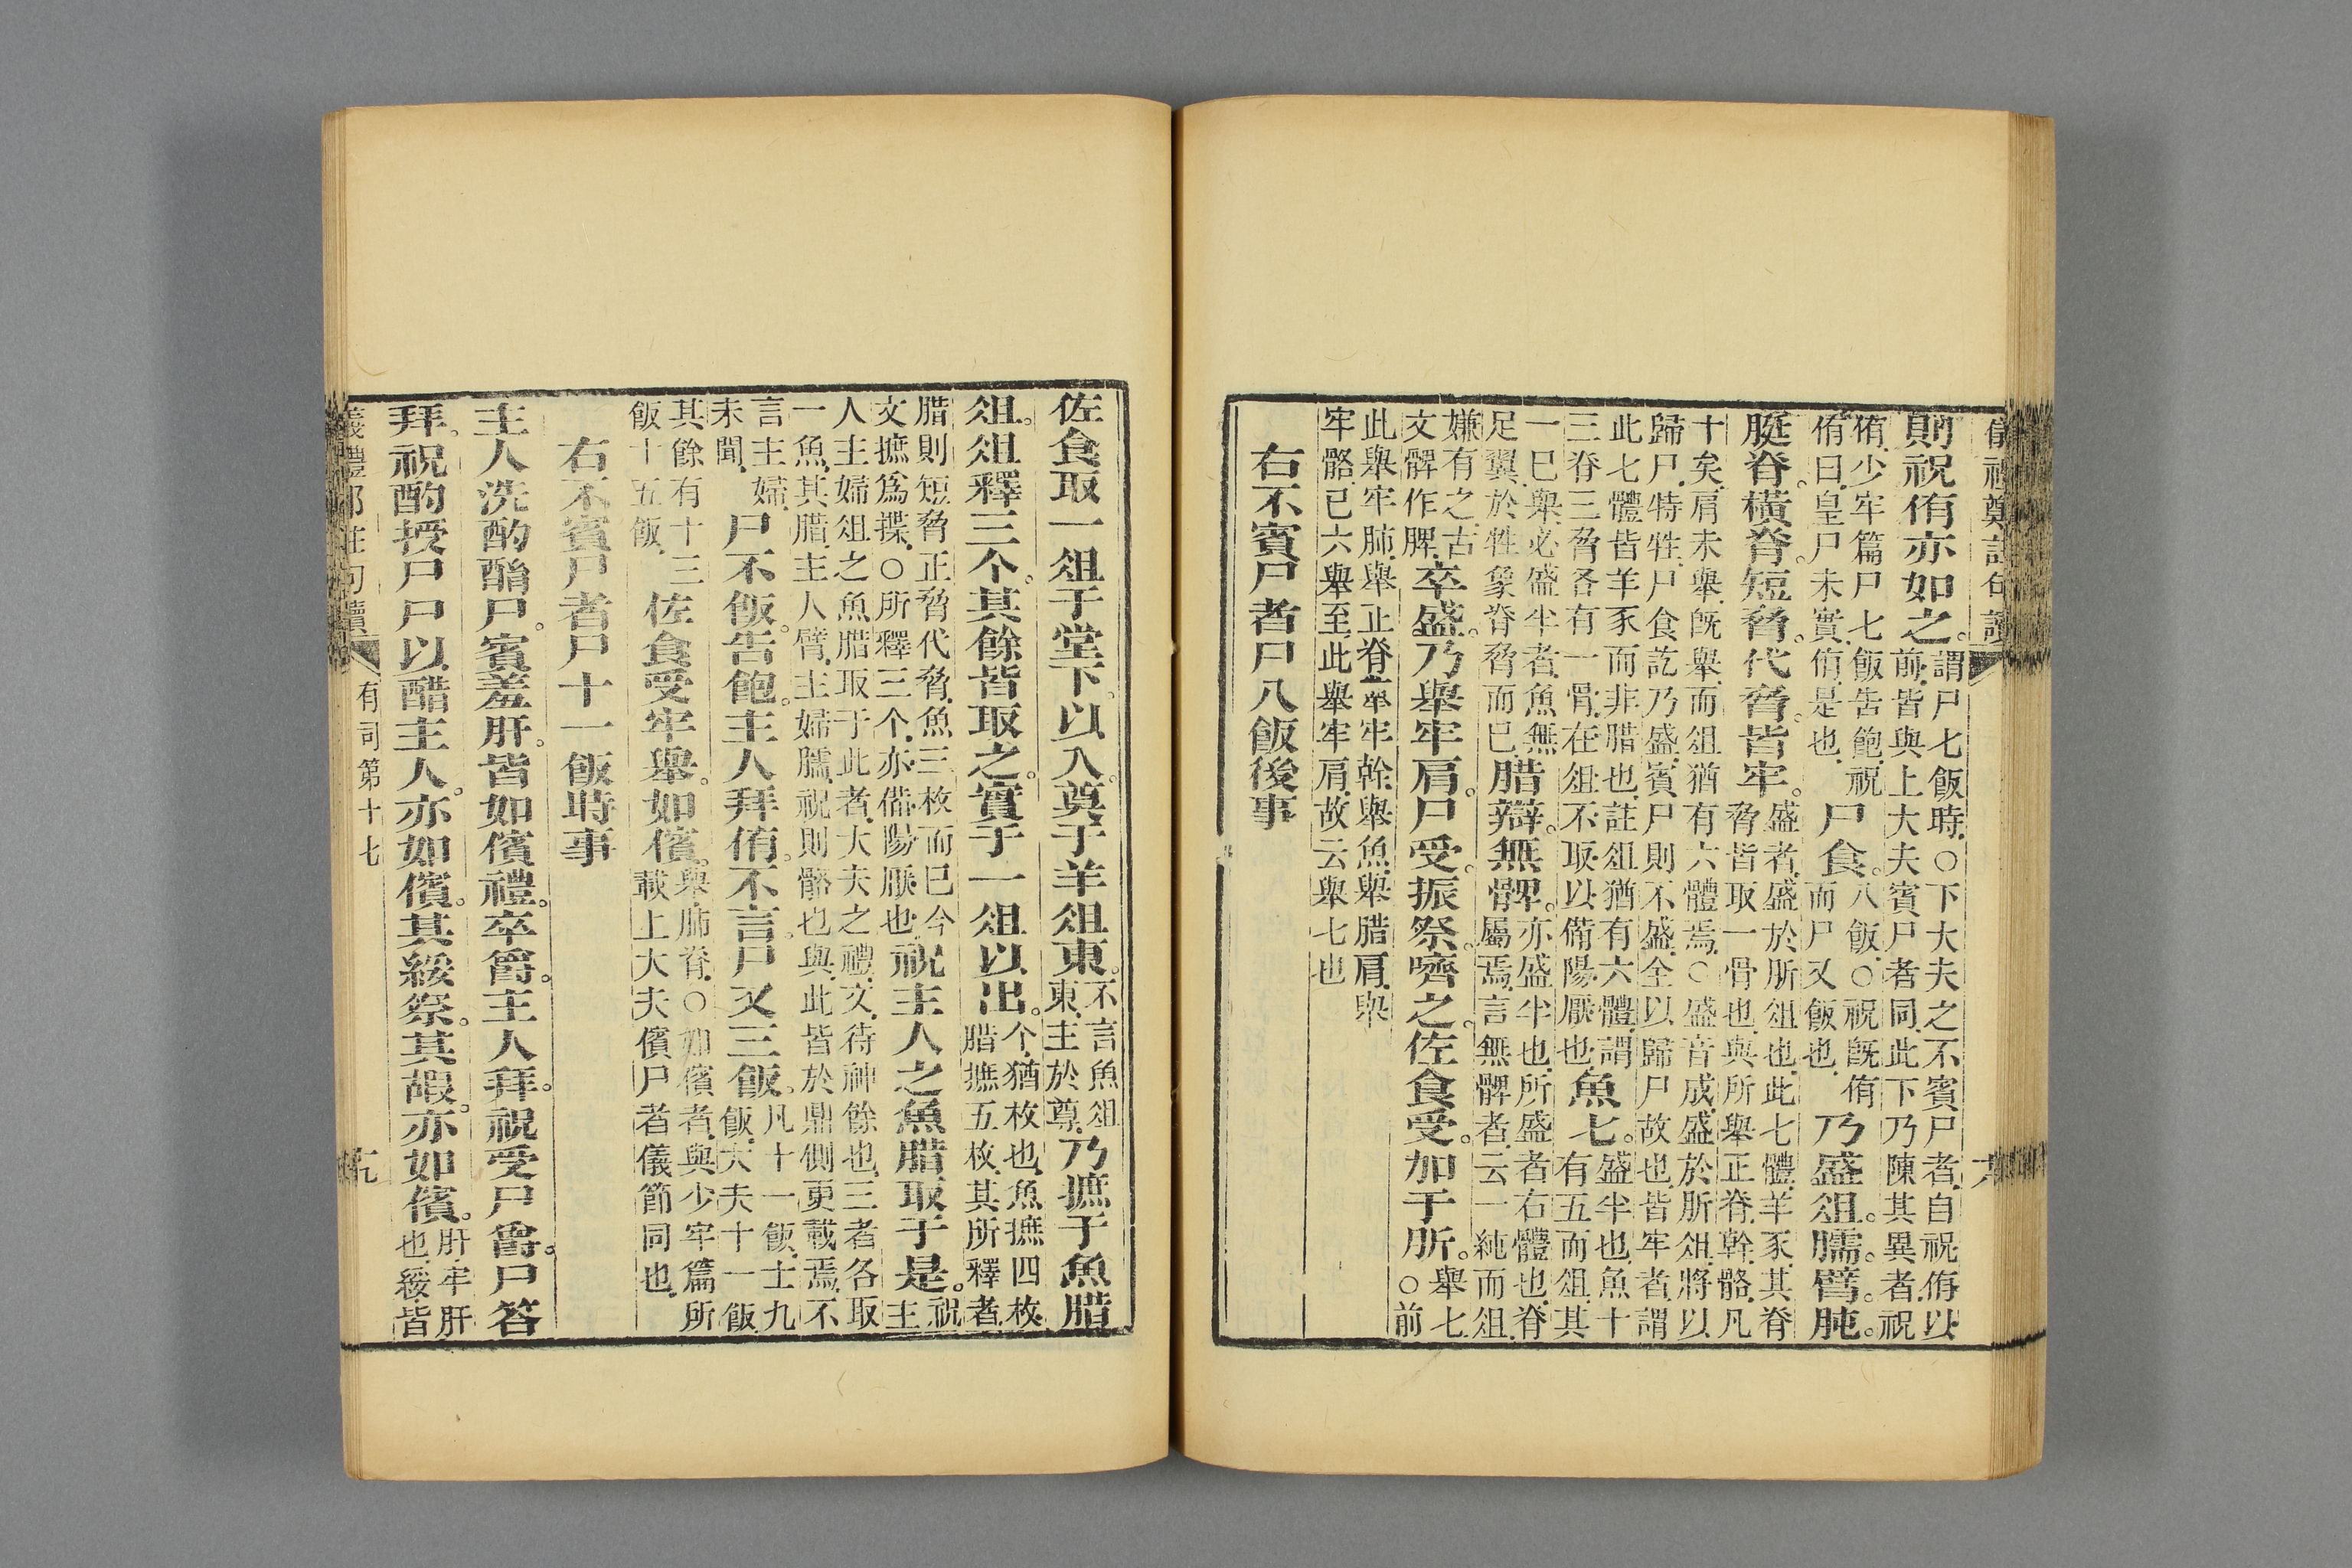 儀禮鄭註句讀
則祝侑亦如之。謂尸七飯時、○下大夫之不賓尸者、自祝侑以前、皆與上大夫賓尸者同、此下乃陳其異者、祝
侑、少牢篇尸七飯告飽、祝侑曰、皇尸未實、侑、是也、尸食。八飯、○祝既侑而尸又飯也、乃盛俎。臑。臂。肫。
脡脊。橫脊。短脅。代脅。皆牢。盛者、盛於肵俎也、此七體、羊豕、其脊脅皆取一骨也、與所舉正脊、幹、骼、凡
十矣、肩未舉、既舉、而俎猶有六體焉、○盛音成、盛於肵俎、將以歸尸、特牲、尸食訖乃盛、賓尸則不盛、全以歸尸故也、皆牢者、謂
此七體皆羊豕而非腊也、註俎猶有六體、謂三脊三脅各有一骨、在俎不取以備陽厭也、魚七。盛半也、魚十有五而俎、其
一巳舉、必盛半者、魚無足翼、於牲、象脊脅而已、腊辯。無髀。亦盛半也、所盛者右體也、脊屬焉、言無髀者、云一純而俎、
嫌有之、古文髀作脾、卒盛。乃舉牢肩。尸受。振祭。嚌之。佐食受。加于肵。舉七○前
此舉牢肺、舉正脊、舉牢幹、舉魚、舉腊肩、舉牢骼、已六舉、至此舉牢肩、故云舉七也
右不賓尸者尸八飯後事
佐食取一俎于堂下。以入。奠于羊俎東。不言魚俎東、主於尊、乃摭于魚腊
俎。俎釋三个。其餘皆取之。實于一俎以出。个、猶枚也、魚摭四枚腊摭五枚、其所釋者、
腊則短脅正脅代脅、魚三枚而已今文摭爲揲、○所釋三个、亦備陽厭也、祝主人之魚腊取于是。祝主
人主婦俎之魚腊取于此者、大夫之禮、文、待神餘也、三者各取一魚、其腊、主人臂、主婦臑、祝則骼也與、此皆於鼎側更載焉、不
言主婦、未聞、尸不飯。告飽。主人拜侑。不言。尸又三飯。凡十一飯、士九飯、大夫十一飯、
其餘有十三飯十五飯、佐食受牢舉。如儐。舉肺脊、○如儐者、與少牢篇所載上大夫儐尸者儀節同也、
右不賓尸者尸十一飯時事
主人洗酌酳尸。賓羞肝。皆如儐禮。卒爵。主人拜。祝受尸爵。尸答
拜。祝酌授尸。尸以醋主人。亦如儐。其綏祭。其嘏。亦如儐。肝、牢肝也、綏、皆
儀禮鄭註句讀 有司第十七